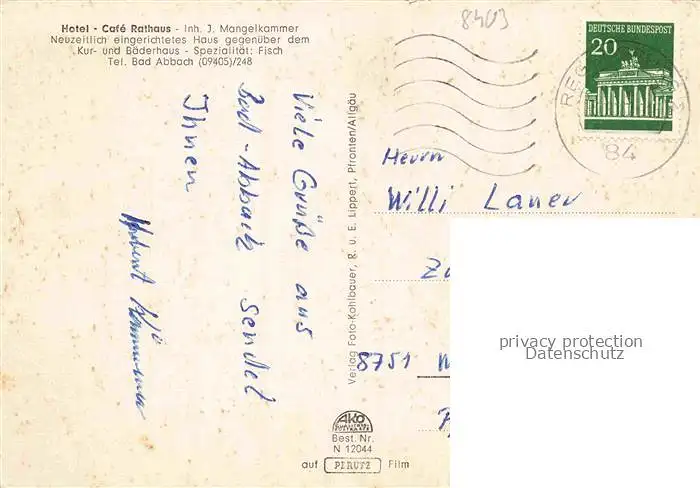 Hotel - Café Rathaus - Inh. J. Mangelkammer
Neuzeitlich eingerichtetes Haus gegenüber dem
Kur- und Bäderhaus - Spezialität: Fisch
Tel. Bad Abbach (09405)/248
8403
DEUTSCHE BUNDESPOST
20
REG
84
Viele Grüße aus
Bad-Abbach sendet
Ihnen
Hubert
Verlag Foto-Kohlbauer, R. u. E. Lippert, Pfronten/Allgäu
Herrn
Willi Laner
8751
privacy protection
Datenschutz
AKO
Best. Nr.
N 12044
auf PERUTZ Film